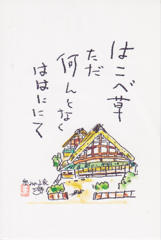 はこべ草
ただ
何んとなく
ははににて